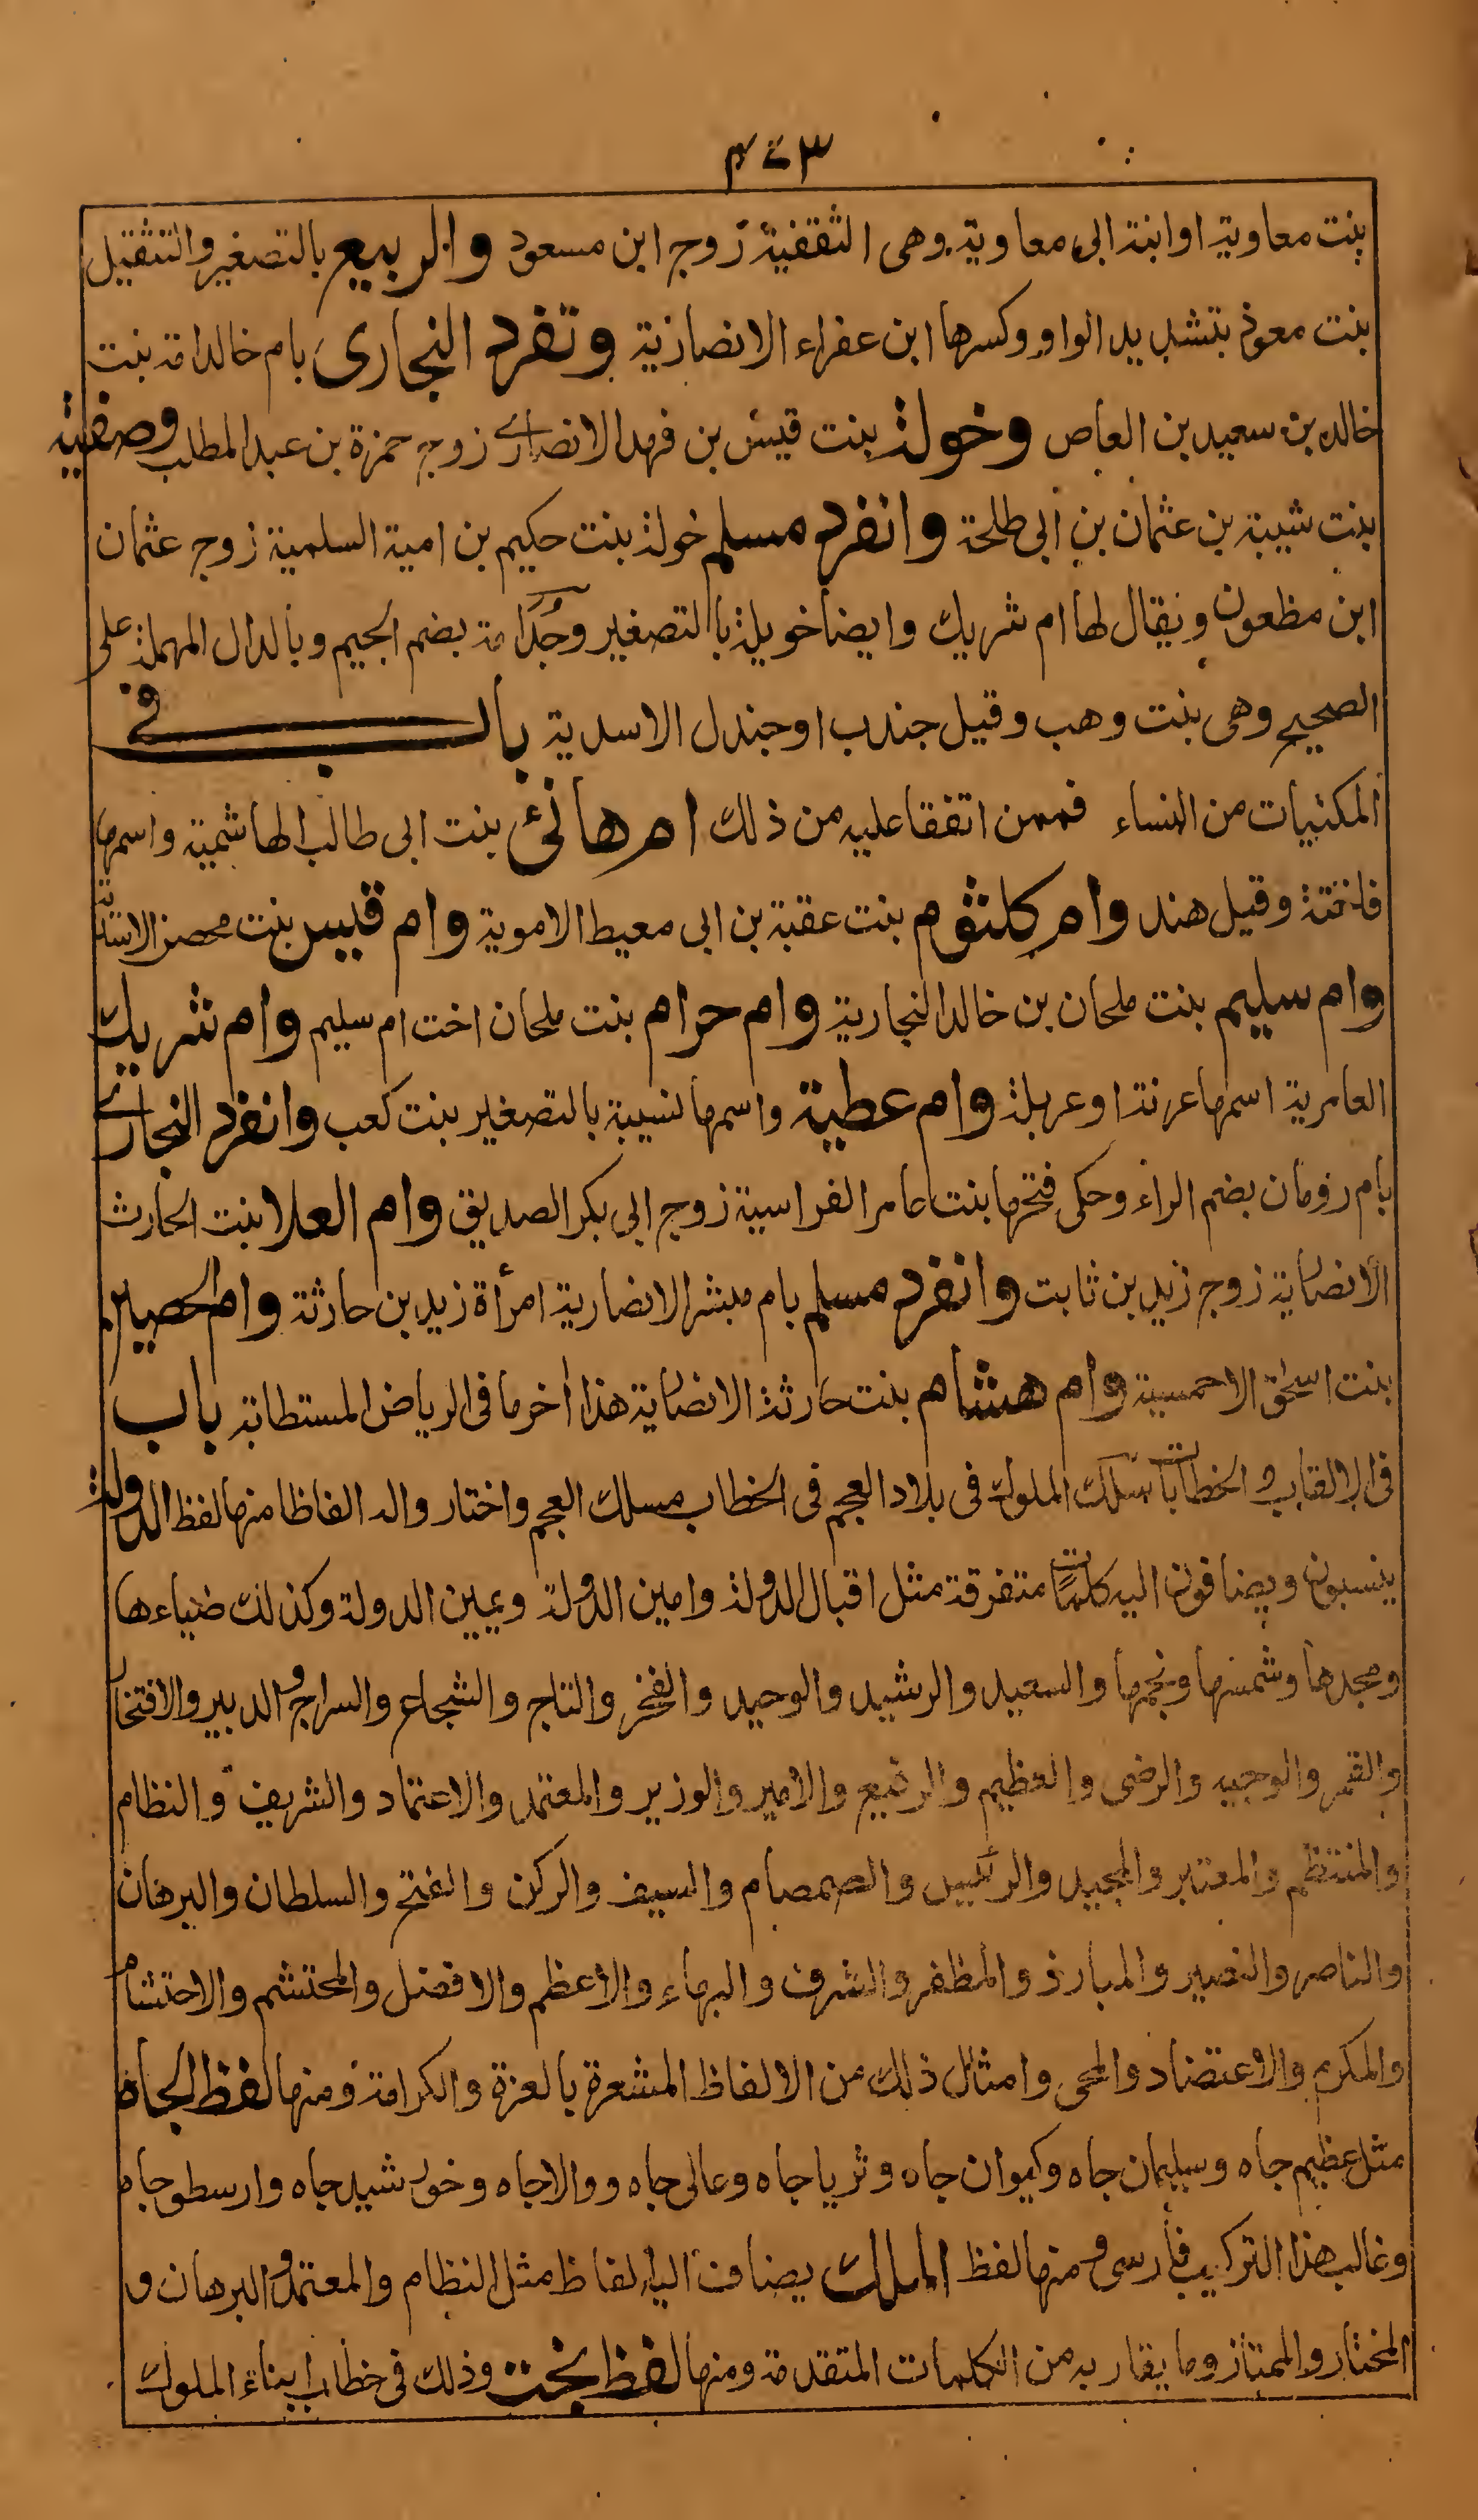 ٤٧٣
بنت معاوية او ابنة ابى معاوية وهى الثقفية زوج ابن مسعود والربيع بالتصغير والتثقيل
بنت معوذ بتشديد الواو وكسرها ابن عفراء الانصارية وتفرد البخارى بام خالد امة بنت
خالد بن سعيد بن العاص وخولة بنت قيس بن فهد الانصارى زوج حمزة بن عبد المطلب وصفية
بنت شيبة بن عثمان بن ابى طلحة وانفرد مسلم خولة بنت حكيم بن امية السلمية زوج عثمان
ابن مظعون ويقال لها ام شريك وايضا خويلة بالتصغير وجُدَامة بضم الجيم وبالدال المهملة على
الصحيح وهى بنت وهب وقيل جندب او جندل الاسدية باب فى
المكنيات من النساء فممن اتفقا عليه من ذلك ام هانئ بنت ابى طالب الهاشمية واسمها
فاختة وقيل هند وام كلثوم بنت عقبة بن ابى معيط الاموية وام قيس بنت محصن الاسدية
وام سليم بنت ملحان بن خالد النجارية وام حرام بنت ملحان اخت ام سليم وام شريك
العامرية اسمها عزنة او عزيلة وام عطية واسمها نسيبة بالتصغير بنت كعب وانفرد البخارى
بام رومان بضم الراء وحكى فتحها بنت عامر الفراسية زوج ابى بكر الصديق وام العلا بنت الحارث
الانصارية زوج زيد بن ثابت وانفرد مسلم بام مبشر الانصارية امرأة زيد بن حارثة وام الحصين
بنت اسحق الاحمسية وام هشام بنت حارثة الانصارية هذا اخر ما فى الرياض المستطابة باب
فى الالقاب والخطابات سلك الملوك فى بلاد العجم فى الخطاب مسلك العجم واختار والد الفاظا منها لفظ الدولة
ينسبون ويضافون اليه كلمات متفرقة مثل اقبال الدولة وامين الدولة ويمين الدولة وكذلك ضياءها
ومجدها وشمسها ونجمها والسعيد والرشيد والوحيد والفخر والتاج والشجاع والسراج والدبير والافتخار
والقمر والوجيه والرضى والعظيم والرفيع والامير والوزير والمعتمد والاعتماد والشريف والنظام
والمنتظم والمعتبر والمجيد والرئيس والصمصام والسيف والركن والفتح والسلطان والبرهان
والناصر والنصير والمبارز والمظفر والشرف والبهاء والاعظم والافضل والمحتشم والاحتشام
والمكرم والاعتضاد والمحى وامثال ذلك من الالفاظ المشعرة بالعزة والكرامة ومنها لفظ الجاه
مثل عظيم جاه وسليمان جاه وكيوان جاه وثريا جاه وعالى جاه ووالا جاه وخورشيد جاه وارسطو جاه
وغالب هذا التركيب فارسى ومنها لفظ الملك يضاف اليه الفاظ مثل النظام والمعتمد والبرهان و
المختار والممتاز وما يقاربه من الكلمات المتقدمة ومنها لفظ بخت وذلك فى خطاب ابناء الملوك